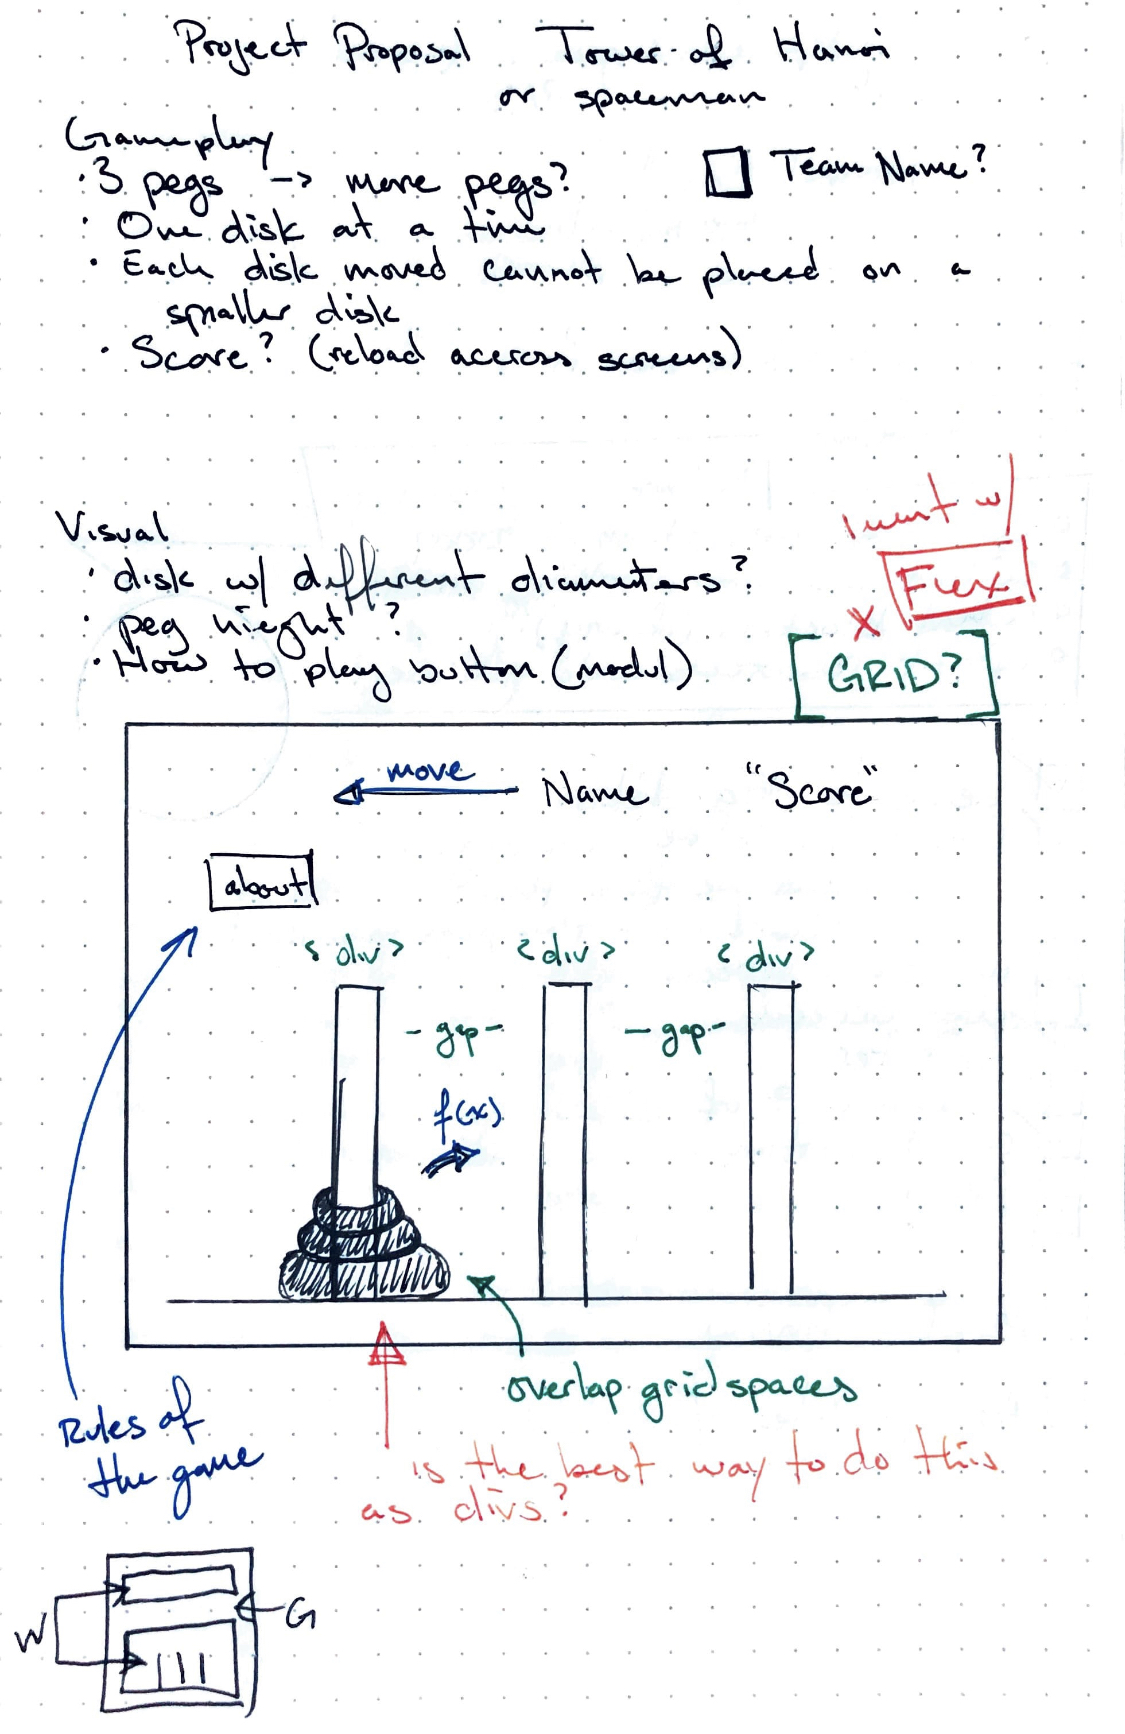 Project Proposal Tower of Hanoi
or spaceman
Gameplay
· 3 pegs -> more pegs?
Team Name?
· One disk at a time
· Each disk moved cannot be placed on a
smaller disk
· Score? (reload accross screens)
I went w/
Flex
x
[GRID?]
Visual
· disk w/ different diameters?
· peg hieght?
· How to play button (modul)
move
Name
"Score"
about
<div> <div> <div>
- gap - - gap -
f(x)
overlap grid spaces
Rules of
the game
is the best way to do this
as divs?
W
G